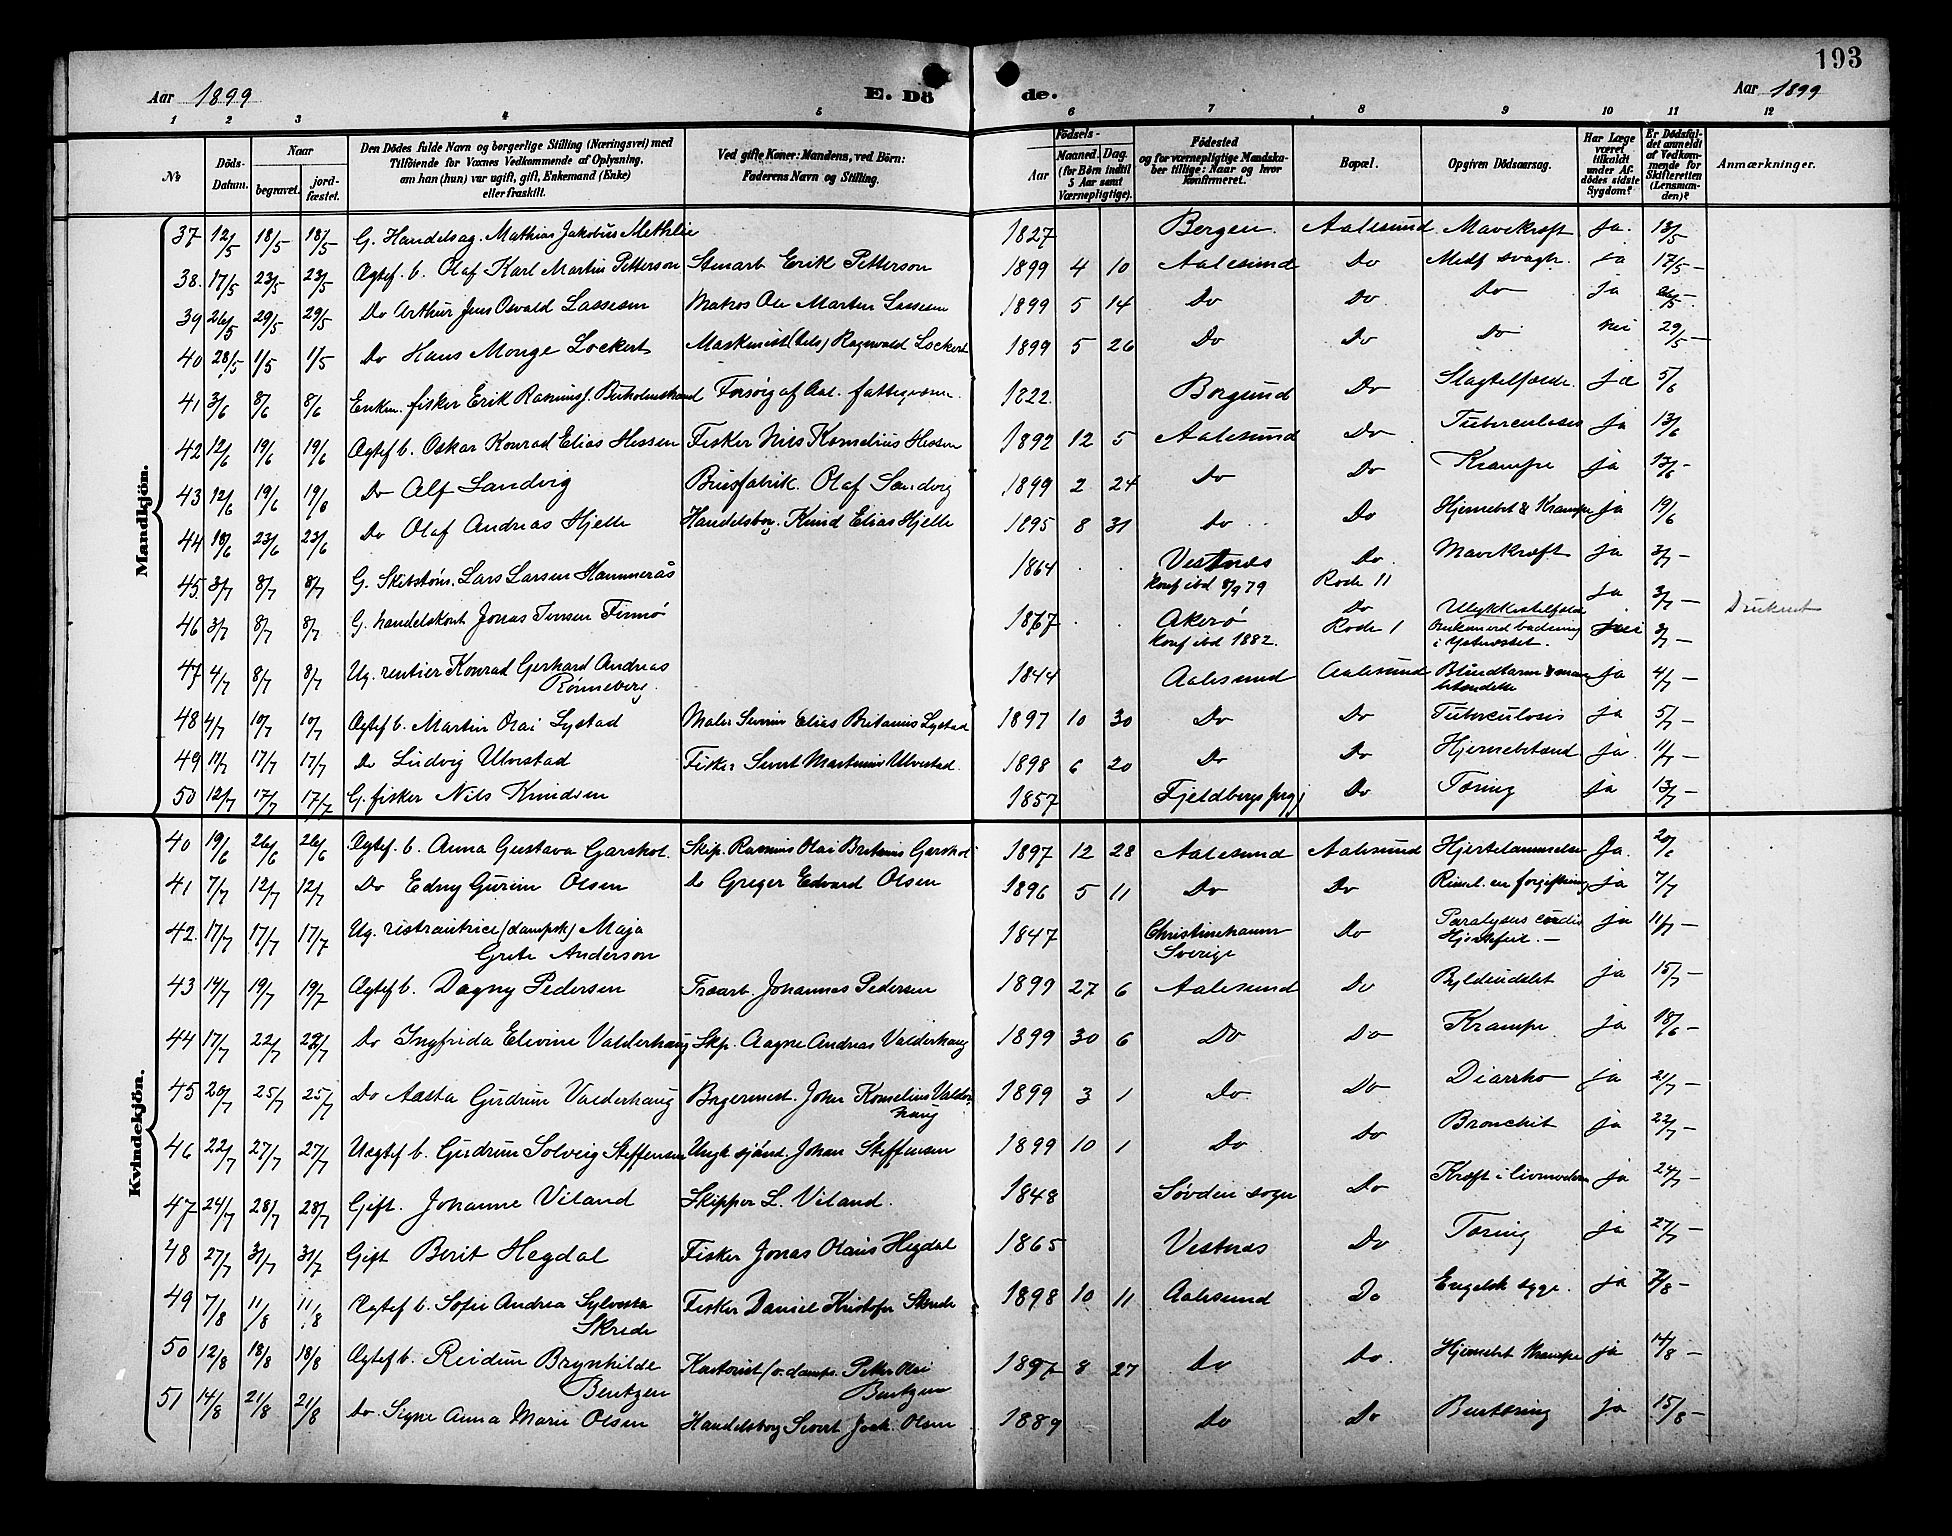 193
Aar 1899 E. Dö de. Aar 1899
1 2 3 4 5 6 7 8 9 10 11 12
No
Döds-Datum.
Naar
begravet.
jordfæstet.
Den Dödes fulde Navn og borgerlige Stilling (Næringsvei) med
Tilföiende for Voxnes Vedkommende af Oplysning,
om han (hun) var ugift, gift, Enkemand (Enke)
eller fraskilt.
Ved gifte Koner: Mandens, ved Börn:
Faderens Navn og Stilling.
Födsels-
Aar
Maaned. Dag.
(for Börn indtil
5 Aar samt
Værnepligtige).
Födested
og for værnepligtige Mandska-
ber tillige: Naar og hvor
konfirmeret.
Bopæl.
Opgiven Dödsaarsag.
Har Læge
været
tilkaldt
under Af-
dödes sidste
Sygdom?
Er Dödsfal-
det anmeldt
af Vedkom-
mende for
Skifteretten
(Lensman-
den)?
Anmærkninger.
Mandkjön.
37 12/5 18/5 18/5 G. Handelsag. Mathias Jakobus Methlie 1827 Bergen. Aalesund Mavekræft Ja. 13/5
38. 17/5 23/5 23/5 Ægtef. b. Olaf Karl Martin Petterson Stuart Erik Petterson 1899 4 10 Aalesund Do Medf svagh. ja 17/5 –
39 26/5 29/5 29/5 Do Arthur Jens Osvald Lassesen Matros Ole Martin Lassesen 1899 5 14 Do Do Do Ja 26/5 –
40 28/5 1/5 1/5 Do Hans Monge Lockert Maskinist (dels) Ragnvald Lockert 1899 5 26 Do Do Do nei 29/5 –
41 3/6 8/6 8/6 Enkm. fisker Erik Rasmus f. Forsörg af Aal. fattigvæsen 1822 Borgund Do Slagtilfælde. ja 5/6
42 12/6 19/6 19/6 Ægtef b. Oskar Konrad Elias Hessen Fisker Nils Kornelius Hessen 1892 12 5 Aalesund Do Tuberculosis Ja 13/6
43 12/6 19/6 19/6 Do Alf Sandvig Brusfabrik. Olaf Sandvig 1899 2 24 Do Do Krampe ja 13/6 –
44 19/6 23/6 23/6 Do Olaf Andreas Hjelle Handelsborg. Knud Elias Hjelle 1895 8 31 Do Do Hjernebet & Krampe Ja 19/6
45. 3/7 8/7 8/7 G. Skibstöm. Lars Larsen Hammerås 1864 Vestnes Do. Mavekræft ja 3/7 –
konf ibd 8/9 79 Rode 11
46 3/7 8/7 8/7 G. handelskont Jonas Jensen Finnö 1867 Akerö Do Ulykkestilfælde Ja 3/7 – Druknet
konf ibd 1882. Rode 1 Druknet ved badning nei 3/7 –
i
47 4/7 8/7 8/7 Ug. rentier Konrad Gerhard Andreas 1844 Aalesund Aalesund Blindtarm ja 4/7 –
Rönneberg. betændelse
48 4/7 10/7 10/7 Ægtef b. Martin Olai Systad Maler Severin Elias Britanius Systad 1897 10 30 Do Do Tuberculosis ja 5/7 –
49 11/7 17/7 17/7 Do Ludvig Ulvestad Fisker Sivert Martinius Ulvestad. 1898 6 20 Do Do Hjernebetænd ja. 11/7 –
50 12/7 17/7 17/7 G. fisker Nils Knudsen 1857 Fjeldbergs prgj Do Tæring ja 13/7 –
Kvindekjön.
40 19/6 26/6 26/6 Ægtef. b. Anna Gustava Garshol. Skip. Rasmus Olai Britanius Garshol 1897 12 28 Aalesund Aalesund Hjertelammelse Ja. 20/6
41 7/7 12/7 12/7 Do Edny Gurine Olsen Do Greger Edvard Olsen 1896 5 11 Do Do forgiftning Ja 7/7
42. 17/7 17/7 17/7 Ug. restrautrice (dampsk) Maja 1847 Christinehamn Do Paralysis cordis ja 11/7 –
Grete Anderson Sverige Hjertefeil. –
43 14/7 19/7 19/7 Ægtef b. Dagny Pedersen Træarb. Johannes Pedersen 1899 27 6 Aalesund Do Byldeudslet ja 15/7 –
44 17/7 22/7 22/7 Do Ingfrida Elivine Valderhaug Skp. Aagne Andreas Valderhaug 1899 30 6 Do Do Krampe. ja 18/6 –
45 20/7 25/7 25/7 Do Aasta Gudrun Valderhaug Bogermest. Johan Kornelius Valder- 1899 3 1 Do. Do Diarrho ja 21/7 –
haug
46 22/7 27/7 27/7 Uægtef b. Gudrun Solveig Steffensen Ungk sjömd. Johan Steffensen 1899 10 1 Do Do Bronchit ja 22/7 –
47 24/7 28/7 28/7 Gift. Johanne Viland Skipper L. Viland. 1848 Sövden sogn Do Kræft i livmoderen ja 24/7 –
48 27/7 31/7 31/7 Gift Berit Hegdal Fisker Jonas Olaus Hegdal 1865 Vestnes Do Tæring ja 27/7 –
49 7/8 11/8 11/8 Ægtef b. Sofie Andrea Sylvesta Fisker Daniel Kristofer Skrede 1898 10 11 Aalesund Do Engelsk syge. ja 7/8 –
Skrede
50 12/8 18/8 18/8 Ægtef b. Reidun Brynhilde (v. damps. Peter Olai 1897 8 27 Do Do. Hjernebet Krampe ja 14/8 –
Bentzen Bentzen
51 14/8 21/8 21/8 Do. Signe Anna Marie Olsen Handelsborg Sivert Joch. Olsen 1889 Do Do Bentæring ja 15/8 –